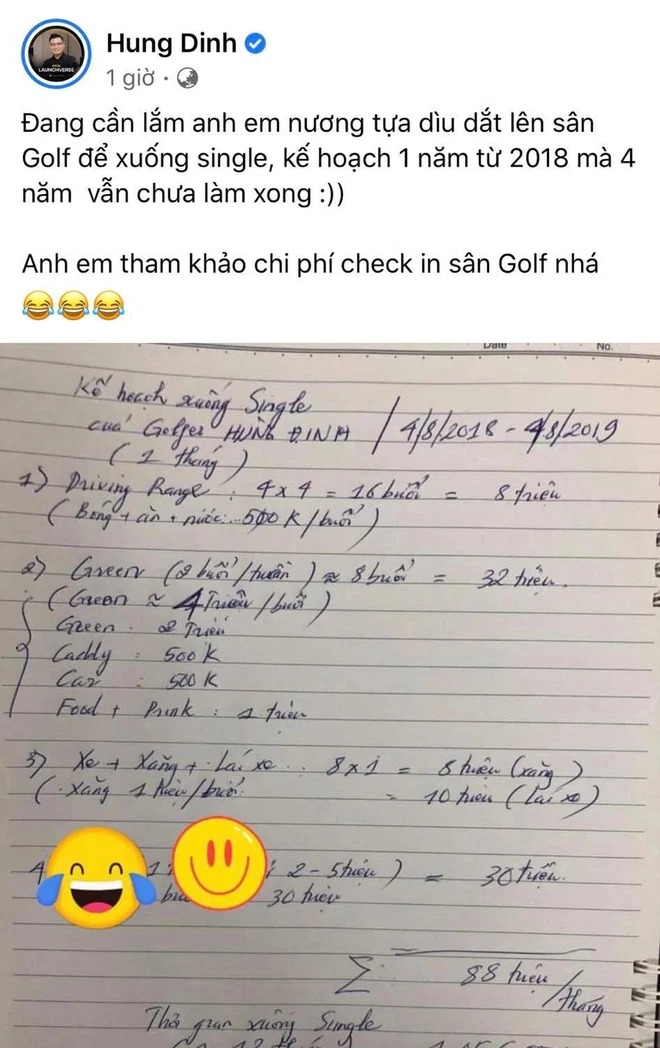 Hung Dinh
LAUNCHVERSE
1 giờ ·
Đang cần lắm anh em nương tựa dìu dắt lên sân
Golf để xuống single, kế hoạch 1 năm từ 2018 mà 4
năm vẫn chưa làm xong :))
Anh em tham khảo chi phí check in sân Golf nhá
😂😂😂
Date No.
Kế hoạch xuống Single
của Golfer HÙNG ĐINH / 4/8/2018 - 4/8/2019
(1 tháng)
1) Driving Range : 4 x 4 = 16 buổi = 8 triệu
(Bóng + ăn + nước: 500 K/buổi)
2) Green (2 buổi/tuần) ≈ 8 buổi = 32 triệu.
(Green ≈ 4 Triệu/buổi)
Green : 2 Triệu
Caddy : 500 K
Car : 500 K
Food + Drink : 1 triệu
3) Xe + Xăng + Lái xe : 8 x 1 = 8 triệu (xăng)
(Xăng 1 triệu/buổi = 10 triệu (Lái xe)
4 2 - 5 triệu) = 30 triệu.
30 triệu
Σ 88 triệu/tháng
Thời gian xuống Single